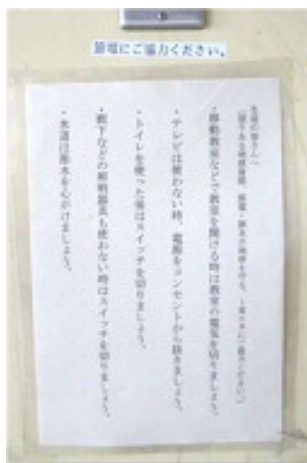 節電にご協力ください。
生徒の皆さんへ
・移動教室などで教室を開ける時は教室の電気を切りましょう。
・テレビは使わない時、電源をコンセントから抜きましょう。
・トイレを使った後はスイッチを切りましょう。
・廊下などの照明器具も使わない時はスイッチを切りましょう。
・水道は節水を心がけましょう。